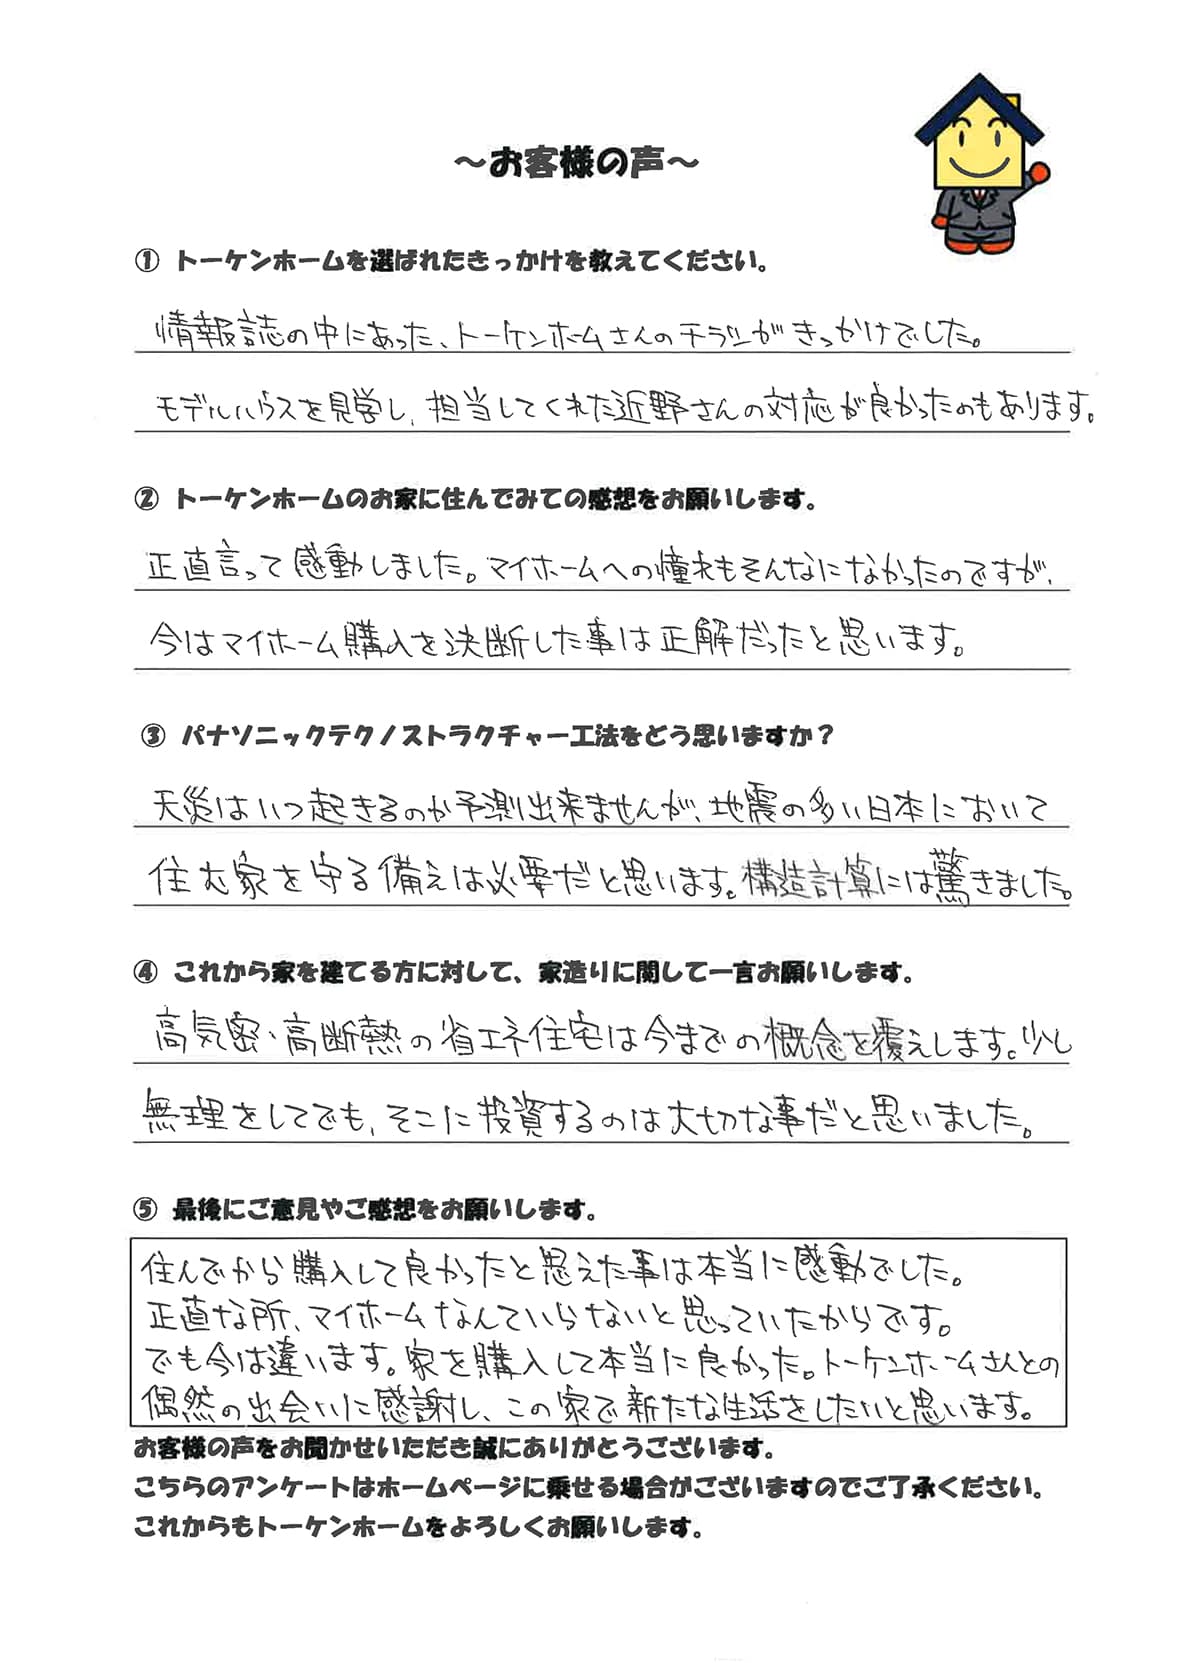 ～お客様の声～
① トーケンホームを選ばれたきっかけを教えてください。
情報誌の中にあった、トーケンホームさんのチラシがきっかけでした。
モデルハウスを見学し、担当してくれた近野さんの対応が良かったのもあります。
② トーケンホームのお家に住んでみての感想をお願いします。
正直言って感動しました。マイホームへの憧れもそんなになかったのですが、
今はマイホーム購入を決断した事は正解だったと思います。
③ パナソニックテクノストラクチャー工法をどう思いますか？
天災はいつ起きるのか予測出来ませんが、地震の多い日本において
住む家を守る備えは必要だと思います。構造計算には驚きました。
④ これから家を建てる方に対して、家造りに関して一言お願いします。
高気密・高断熱の省エネ住宅は今までの概念を覆えします。少し
無理をしてでも、そこに投資するのは大切な事だと思いました。
⑤ 最後にご意見やご感想をお願いします。
住んでから購入して良かったと思えた事は本当に感動でした。
正直な所、マイホームなんていらないと思っていたからです。
でも今は違います。家を購入して本当に良かった。トーケンホームさんとの
偶然の出会いに感謝し、この家で新たな生活をしたいと思います。
お客様の声をお聞かせいただき誠にありがとうございます。
こちらのアンケートはホームページに乗せる場合がございますのでご了承ください。
これからもトーケンホームをよろしくお願いします。